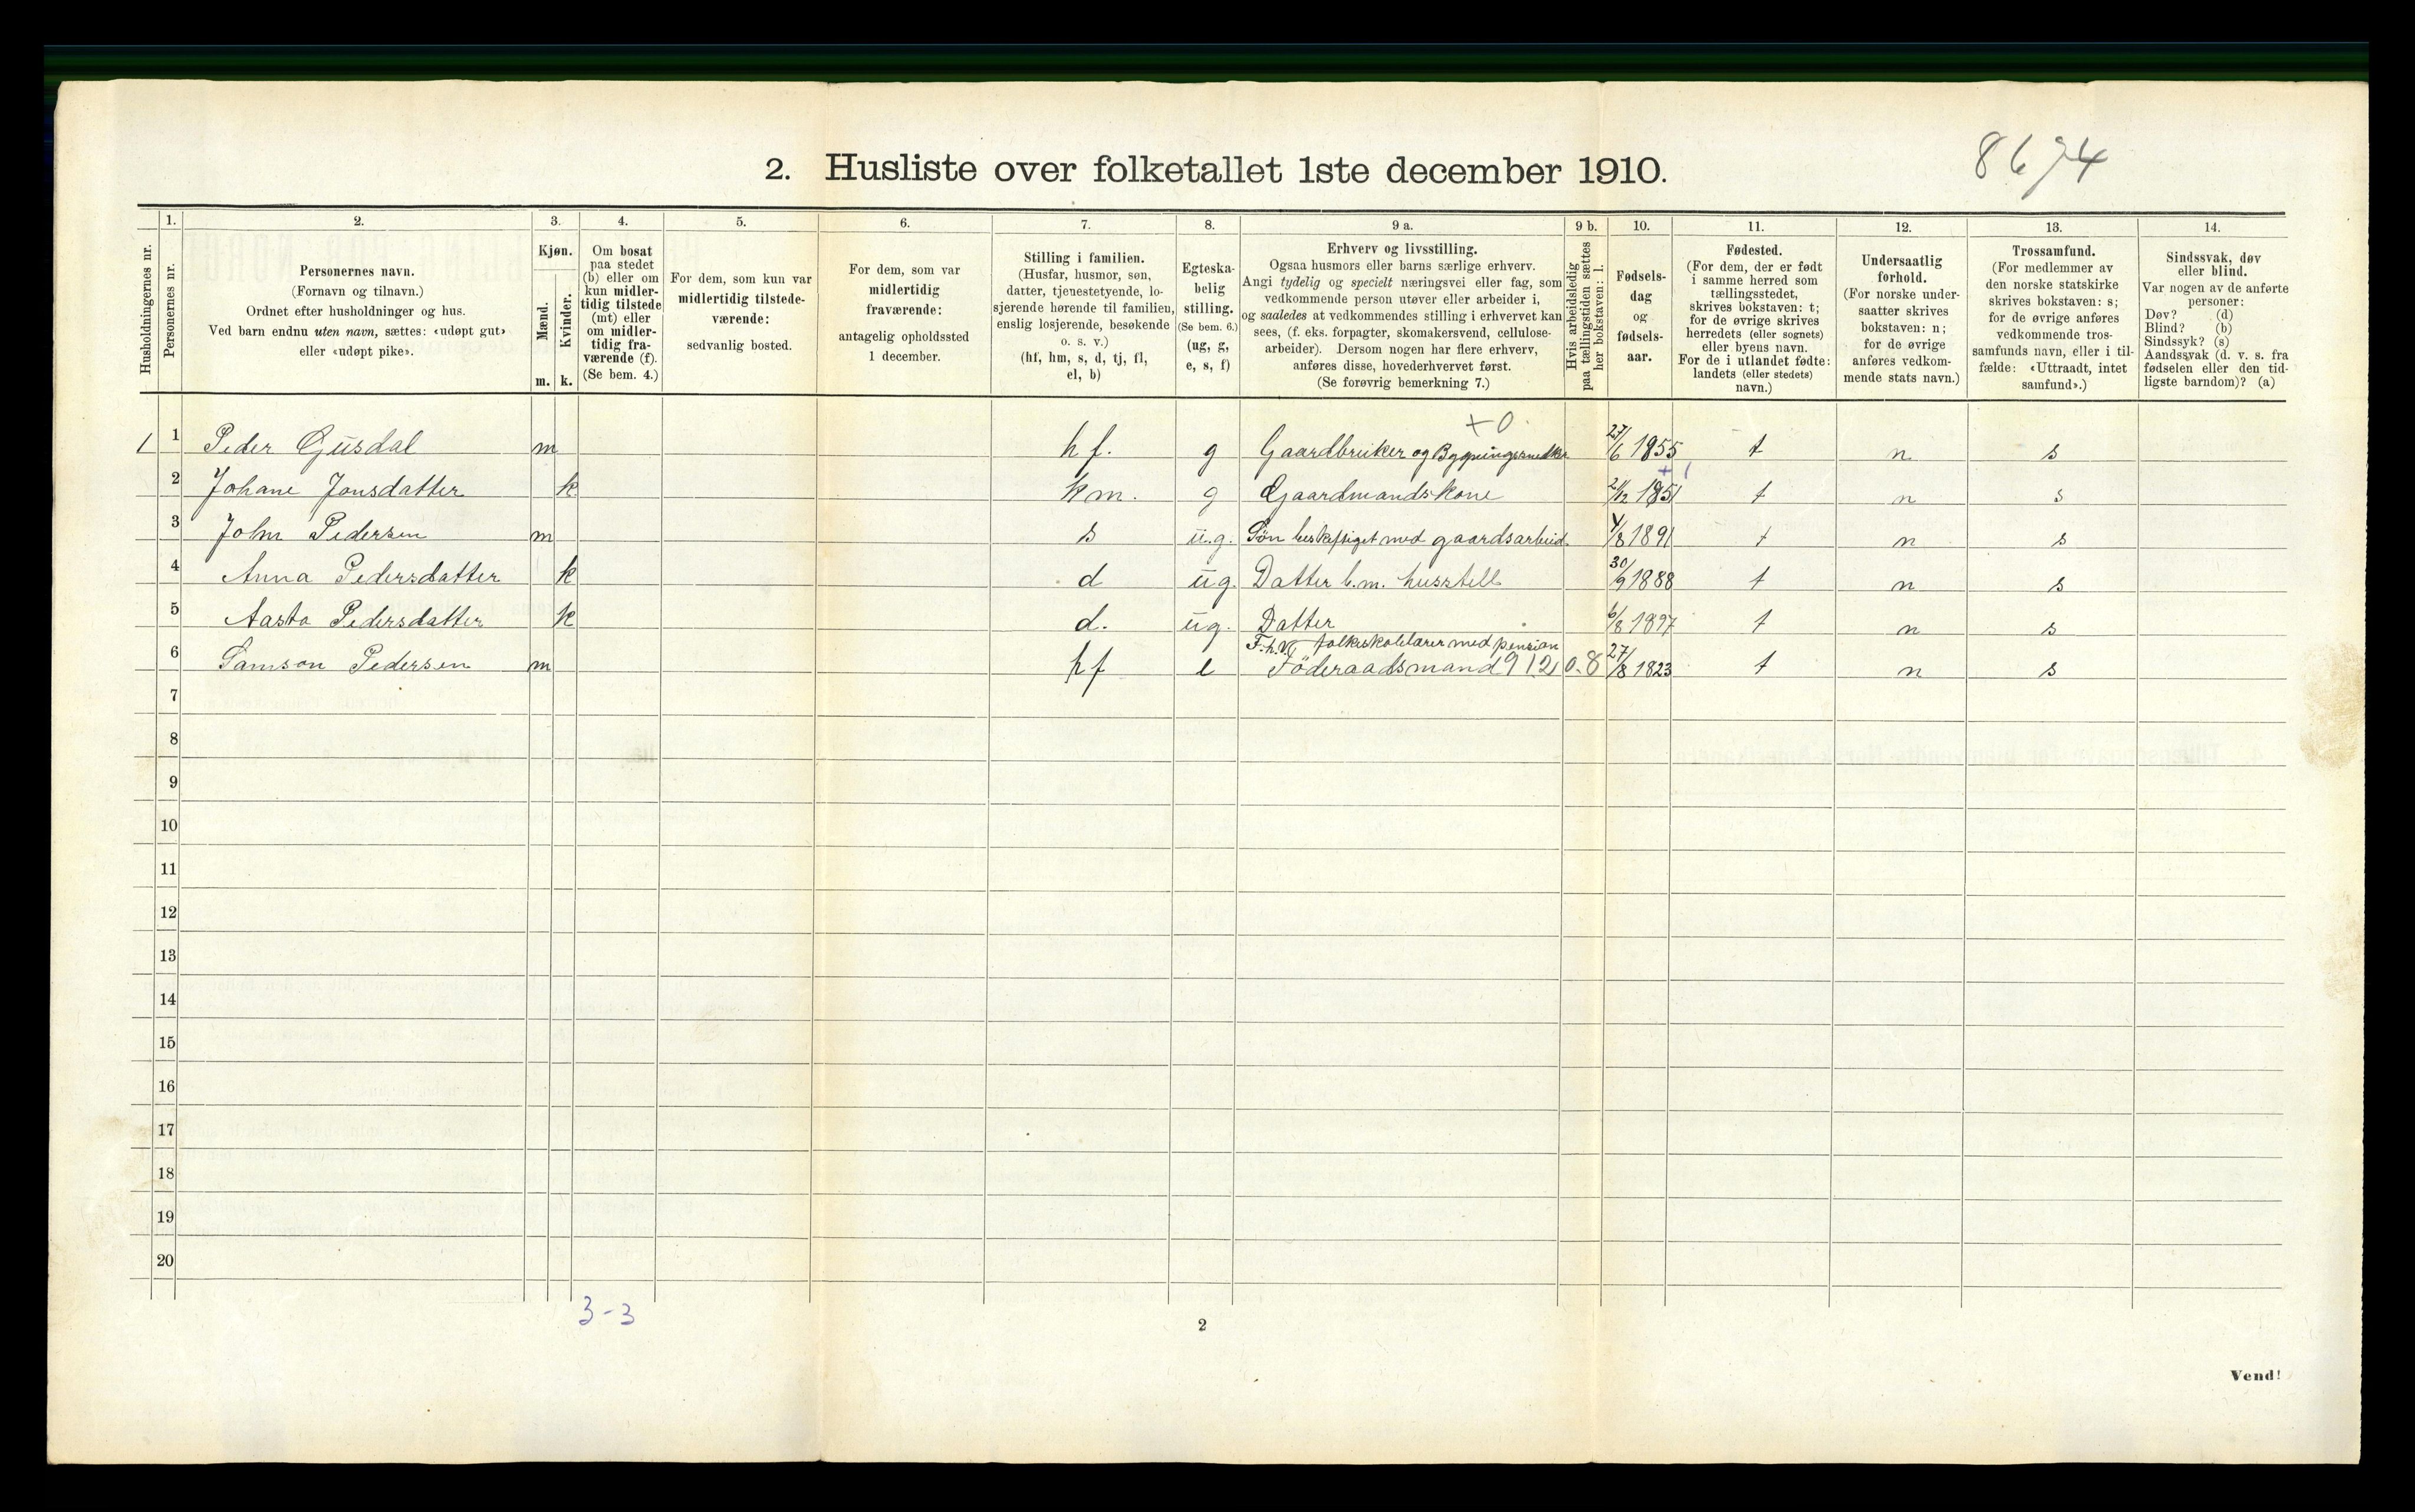 2. Husliste over folketallet 1ste december 1910.
8674
1. 2. 3. 4. 5. 6. 7. 8. 9 a. 9 b. 10. 11. 12. 13. 14.
Husholdningernes nr.
Personernes nr.
Personernes navn.
(Fornavn og tilnavn.)
Ordnet efter husholdninger og hus.
Ved barn endnu uten navn, sættes: «udøpt gut»
eller «udøpt pike».
Kjøn.
Mænd.
Kvinder.
m. k.
Om bosat
paa stedet
(b) eller om
kun midler-
tidig tilstede
(mt) eller
om midler-
tidig fra-
værende (f).
(Se bem. 4.)
For dem, som kun var
midlertidig tilstede-
værende:
sedvanlig bosted.
For dem, som var
midlertidig
fraværende:
antagelig opholdssted
1 december.
Stilling i familien.
(Husfar, husmor, søn,
datter, tjenestetyende, lo-
sjerende hørende til familien,
enslig losjerende, besøkende
o. s. v.)
(hf, hm, s, d, tj, fl,
el, b)
Egteska-
belig
stilling.
(Se bem. 6.)
(ug, g,
e, s, f)
Erhverv og livsstilling.
Ogsaa husmors eller barns særlige erhverv.
Angi tydelig og specielt næringsvei eller fag, som
vedkommende person utøver eller arbeider i,
og saaledes at vedkommendes stilling i erhvervet kan
sees, (f. eks. forpagter, skomakersvend, cellulose-
arbeider). Dersom nogen har flere erhverv,
anføres disse, hovederhvervet først.
(Se forøvrig bemerkning 7.)
Hvis arbeidsledig
paa tællingstiden sættes
her bokstaven: l.
Fødsels-
dag
og
fødsels-
aar.
Fødested.
(For dem, der er født
i samme herred som
tællingsstedet,
skrives bokstaven: t;
for de øvrige skrives
herredets (eller sognets)
eller byens navn.
For de i utlandet fødte:
landets (eller stedets)
navn.)
Undersaatlig
forhold.
(For norske under-
saatter skrives
bokstaven: n;
for de øvrige
anføres vedkom-
mende stats navn.)
Trossamfund.
(For medlemmer av
den norske statskirke
skrives bokstaven: s;
for de øvrige anføres
vedkommende tros-
samfunds navn, eller i til-
fælde: «Uttraadt, intet
samfund».)
Sindssvak, døv
eller blind.
Var nogen av de anførte
personer:
Døv? (d)
Blind? (b)
Sindssyk? (s)
Aandssvak (d. v. s. fra
fødselen eller den tid-
ligste barndom)? (a)
+0.
1 1 Peder Gusdal m hf. g Gaardbruker og Bygningssnedker 27/6 1855 t n s
2 Johane Jonsdatter k hm. g Gaardmandskone 21/12 1851 t n s
3 John Pedersen m s ug. Søn beskjæftiget med gaardsarbeid 4/8 1891 t n s
4 Anna Pedersdatter k d ug. Datter b.m. husstell 30/9 1888 t n s
5 Aasta Pedersdatter k d. ug. Datter 6/8 1897 t n s
F.h.v. folkeskolelærer med pension
6 Samson Pedersen m hf e Föderaadsmand 912 0.8 27/8 1823 t n s
7
8
9
10
11
12
13
14
15
16
17
18
19
20
3-3
2
Vend!